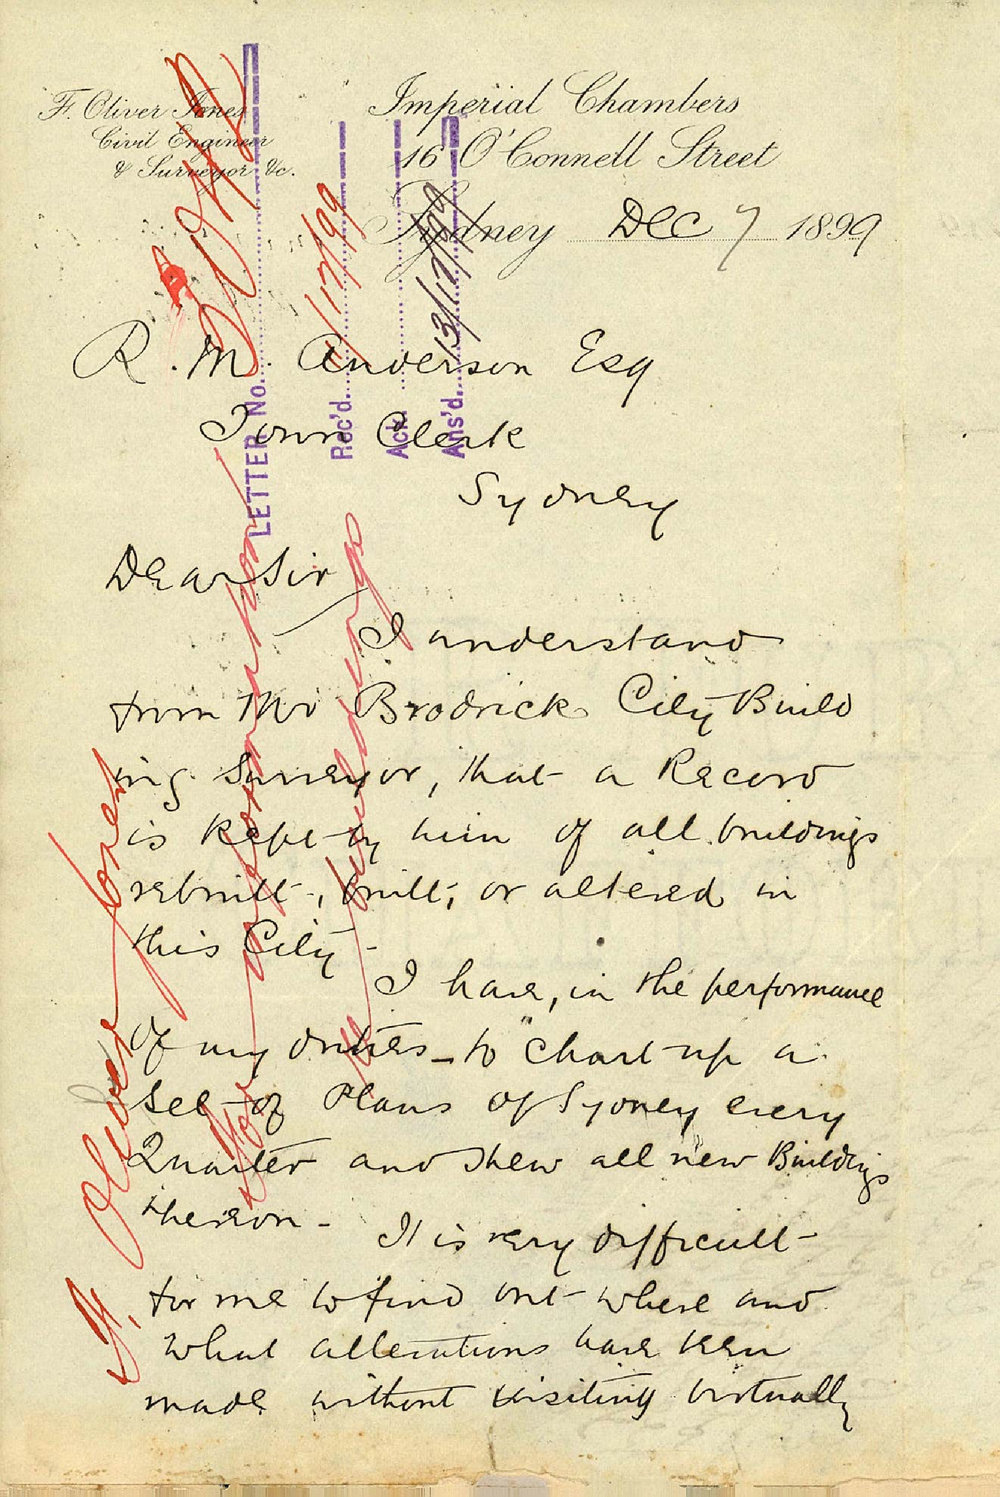 F. Oliver Jones
Civil Engineer
& Surveyor &c.
Imperial Chambers
16 O'Connell Street
Sydney Dec 7 1899
LETTER No.
Rec'd. 7/12/99
Ack.
Ans'd. 13/12/99
R. M. Anderson Esq
Town Clerk
Sydney
Dear Sir
I understand
from Mr Brodrick City Build
ing Surveyor, that a Record
is kept by him of all buildings
rebuilt, built, or altered in
this City -
I have, in the performance
of my duties - to "Chart up a
Set of Plans of Sydney every
Quarter and shew all new Buildings
thereon -
It is very difficult
for me to find out where and
what alterations have been
made without visiting virtually
F. Oliver Jones
for information
re buildings